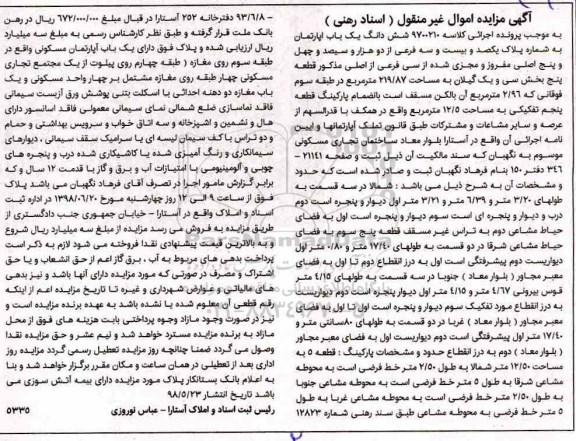 آگهی مزایده اموال غیر منقول ( اسناد رهنی )
به موجب پرونده اجرائی کلاسه ۹۷۰۰۲۱۰ شش دانگ یک باب آپارتمان
به شماره پلاک یکصد و بیست و سه فرعی از دو هزار و سیصد و چهل
و پنج اصلی مفروز و مجزی شده از سی فرعی از اصلی مذکور قطعه
پنج بخش سی و یک گیلان به مساحت ۲۱۹/۸۷ مترمربع در طبقه سوم
فوقانی که ۲/۹۶ مترمربع آن بالکن مسقف است بانضمام پارکینگ قطعه
پنجم تفکیکی به مساحت ۱۲/۵ مترمربع واقع در همکف با قدرالسهم از
عرصه و سایر مشاعات و مشترکات طبق قانون تملک آپارتمانها و آیین
نامه اجرائی آن واقع در آستارا بلوار معاد ساختمان تجاری مسکونی
موسوم به نگهبان که سند مالکیت آن ذیل ثبت و صفحه ۲۱۱۴۱ –
۳۴۶ دفتر ۱۵۰ بنام فرهاد نگهبان ثبت و صادر شده است که حدود
و مشخصات آن به شرح ذیل می باشد : شمالا در سه قسمت به
طولهای ۳/۲۰ متر و ۶/۳۹ متر و ۳/۲۱ متر اول دیوار و پنجره است دوم
درب و دیوار و پنجره ای است سوم دیوار و پنجره است اول به فضای
حیاط مشاعی دوم به تراس غیر مسقف قطعه پنج سوم به فضای
حیاط مشاعی شرقا در دو قسمت به طولهای ۱۷/۴۰ متر ۰/۸۰ متر اول
دیواریست دوم پیشرفتگی است اول به درز انقطاع دوم تا اول به فضای
معبر مجاور ( بلوار معاد ) جنوبا در سه قسمت به طولهای ۴/۱۵ متر
قوس بیرونی ۴/۶۷ متر و ۴/۱۵ متر اول دیوار پنجره است دوم دیواریست
به درز انقطاع مورد تفکیک سوم دیوار و پنجره است اول تا اول به فضای
معبر مجاور ( بلوار معاد ) غربا در دو قسمت به طولهای ۸۰سانتی متر و
۱۷/۴۰ متر اول پیشرفتگی است دوم دیواریست اول به فضای معبر مجاور
( بلوار معاد ) دوم به درز انقطاع حدود و مشخصات پارکینگ : قطعه ۵ به
مساحت ۱۲/۵۰ متر شمالا به طول ۲/۵۰ متر خط فرضی است به محوطه
مشاعی شرقا به طول ۵ متر خط فرضی است به محوطه مشاعی جنوبا
به طول ۲/۵۰ متر خط فرضی است به محوطه مشاعی غربا به طول
۵ متر خط فرضی به محوطه مشاعی طبق سند رهنی شماره ۱۲۸۲۳
– ۹۳/۶/۸ دفترخانه ۲۵۲ آستارا در قبال مبلغ ۶۷۲/۰۰۰/۰۰۰ ریال در رهن
بانک ملت قرار گرفته و طبق نظر کارشناس رسمی به مبلغ سه میلیارد
ریال ارزیابی شده و پلاک فوق دارای یک باب آپارتمان مسکونی واقع در
طبقه سوم روی مغازه ( طبقه چهارم روی پیلوت از یک مجتمع تجاری
مسکونی چهار طبقه روی مغازه مشتمل بر چهار واحد مسکونی و یک
باب مغازه دو دهنه احداثی با اسکلت بتنی پوشش ورق آزبست سیمانی
فاقد نماسازی ضلع شمالی نمای سیمانی معمولی فاقد آسانسور دارای
هال و نشمین و آشپزخانه و سه اتاق خواب و سرویس بهداشتی و حمام
و دو تراس با کف سیمان لیسه ای یا سرامیک سقف سیمانی ، دیوارهای
سیمانکاری و رنگ آمیزی شده یا کاشیکاری شده درب و پنجره های
چوبی و آلومینیومی با امتیازات آب و برق و گاز با قدمت ۱۲ سال و که
برابر گزارش مامور اجرا در تصرف آقای فرهاد نگهبان می باشد پلاک
فوق از ساعت ۹ الی ۱۲ روز چهارشنبه مورخ ۱۳۹۸/۰۶/۲۰ در اداره ثبت
اسناد و املاک واقع در آستارا – خیابان جمهوری جنب دادگستری از
طریق مزایده به فروش می رسد مزایده از مبلغ سه میلیارد ریال شروع
و به بالاترین قیمت پیشنهادی نقدا فروخته می شود لازم به ذکر است
پرداخت بدهی های مربوط به آب ، برق گاز اعم از حق انشعاب و یا حق
اشتراک و مصرف در صورتی که مورد مزایده دارای آنها باشد و نیز بدهی
های مالیاتی و عوارض شهرداری و غیره تا تاریخ مزایده اعم از اینکه
رقم قطعی آن معلوم شده یا نشده باشد به عهده برنده مزایده است و
نیز در صورت وجود مازاد وجوه پرداختی بابت هزینه های فوق از محل
مازاد به برنده مزایده مسترد خواهد شد و نیم عشر و حق مزایده نقدا
وصول می گردد ضمنا چنانچه روز مزایده تعطیل رسمی گردد مزایده روز
اداری بعد از تعطیلی در همان ساعت و مکان مقرر برگزار خواهد شد و بنا
به اعلام بانک بستانکار پلاک مورد مزایده دارای بیمه آتش سوزی می
باشد تاریخ انتشار ۹۸/۵/۲۳
رئیس ثبت اسناد و املاک آستارا – عباس نوروزی ۵۳۳۵